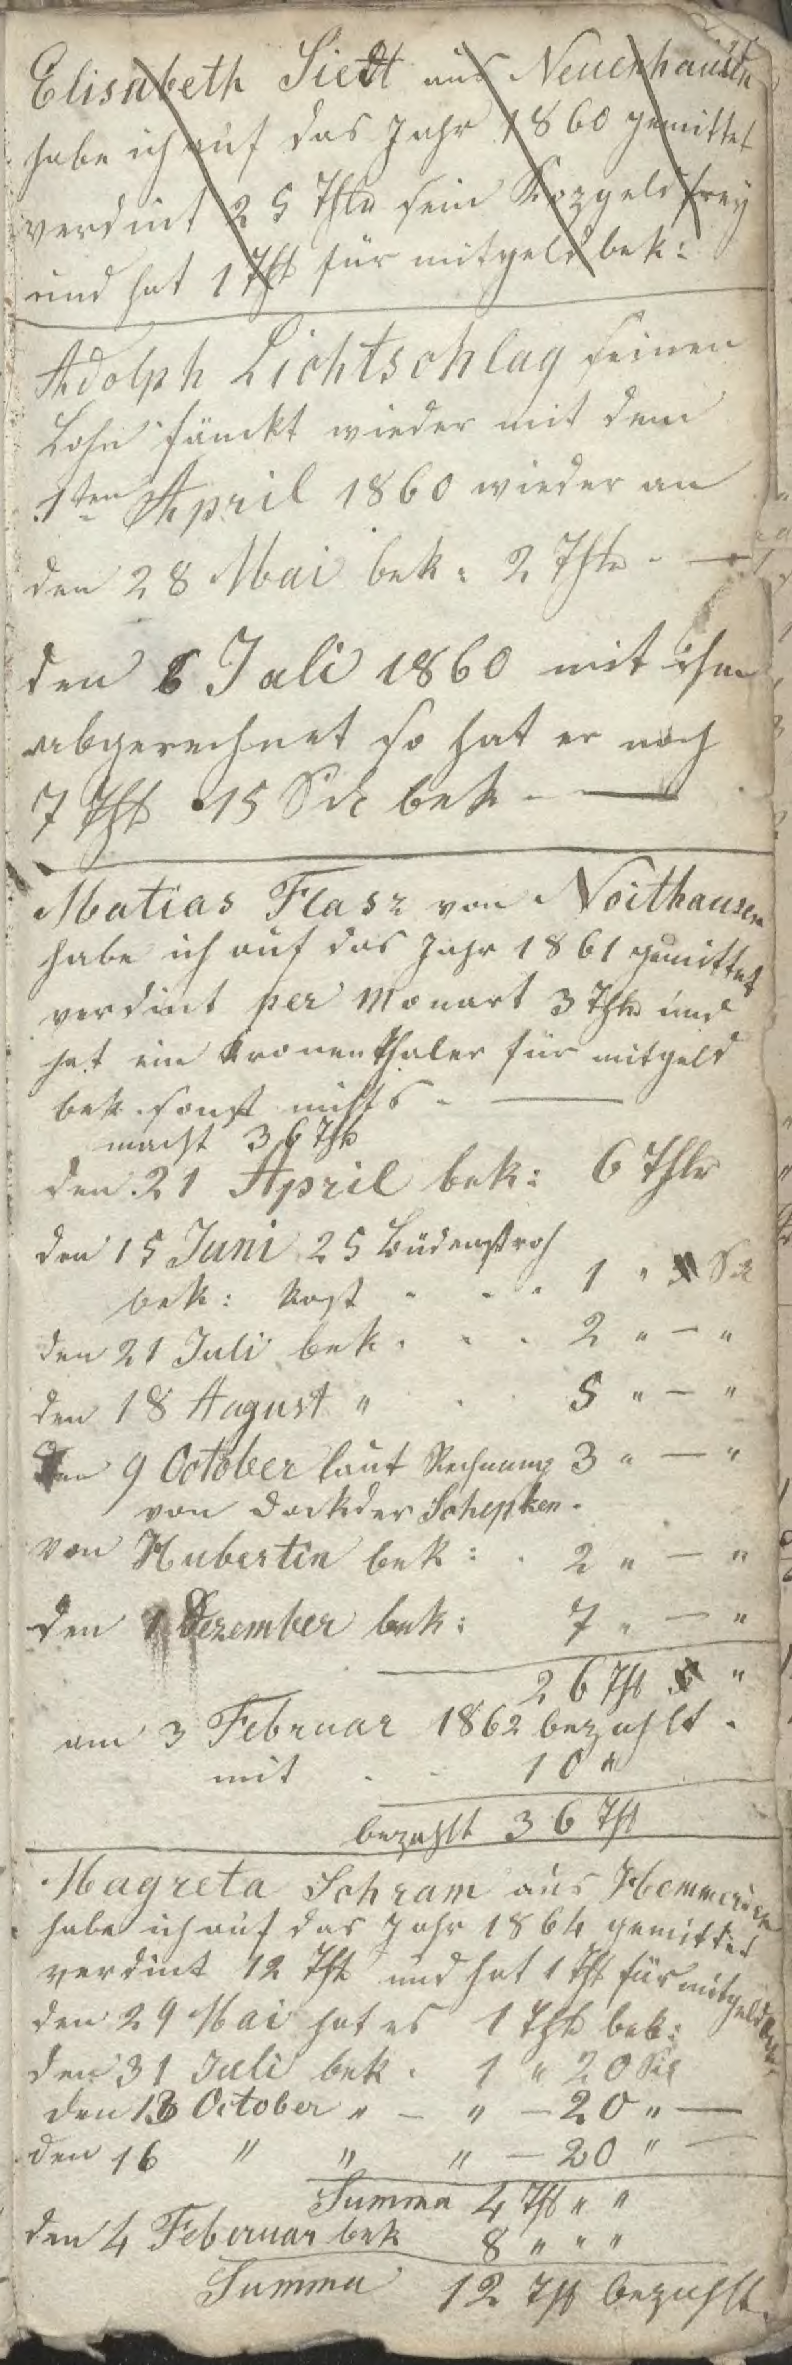 Elisabeth Siedt aus Neuenhausen
habe ich auf das Jahr 1860 gemittet
verdint 25 Thlr sein frey
und hat 1 Thl für mitgeld bek:
Adolph Lichtschlag seinen
Lohn fänckt wieder mit dem
1ten April 1860 wieder an
den 28 Mai bek: 2 Thlr - —
den 6 Juli 1860 mit ihm
abgerechnet so hat er noch
7 Thl 15 Sch bek - —
Matias Flasz von Noithausen
habe ich auf das Jahr 1861 gemittet
verdint per Monart 3 Thlr und
hat ein Kronenthaler für mitgeld
bek. sonst nichts - —
macht 36 Thl
den 21 April bek: 6 Thlr
den 15 Juni 25 Büdenstroh
bek: kost - - - 1 " Sch
den 21 Juli bek. - - 2 " — "
den 18 August " - - 5 " — "
den 9 October laut Rechnung 3 " — "
von Dockder Schepken.
von Hubertin bek: . 2 " — "
den 1 Dezember bek: 7 " — "
26 Thl "
am 3 Februar 1862 bezahlt.
mit - - 10 "
bezahlt 36 Thl
Magreta Schram aus
habe ich auf das Jahr 1864 gemittet
verdint 12 Thl und hat 1 Thl für mitgeld bek:
den 29 Mai hat es 1 Thl bek:
den 31 Juli bek. 1 " 20 Sch
den 13 October " — " — 20 " —
den 16 " " " — 20 " —
Summa 4 Thl " "
den 4 Feberuar bek 8 " " "
Summa 12 Thl bezahlt.